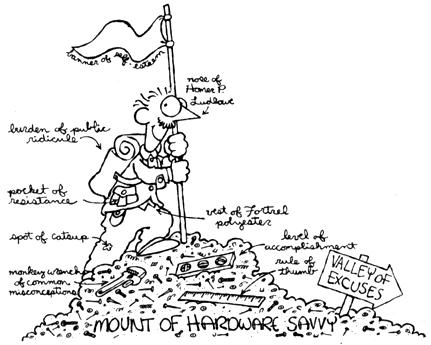 banner of self-esteem
nose of
Homer P.
Ludlowe
burden of public
ridicule
pocket of
resistance
vest of Fortrel
polyester
spot of catsup
level of
accomplishment
rule of
thumb
monkey wrench
of common
misconceptions
VALLEY OF
EXCUSES
MOUNT OF HARDWARE SAVVY